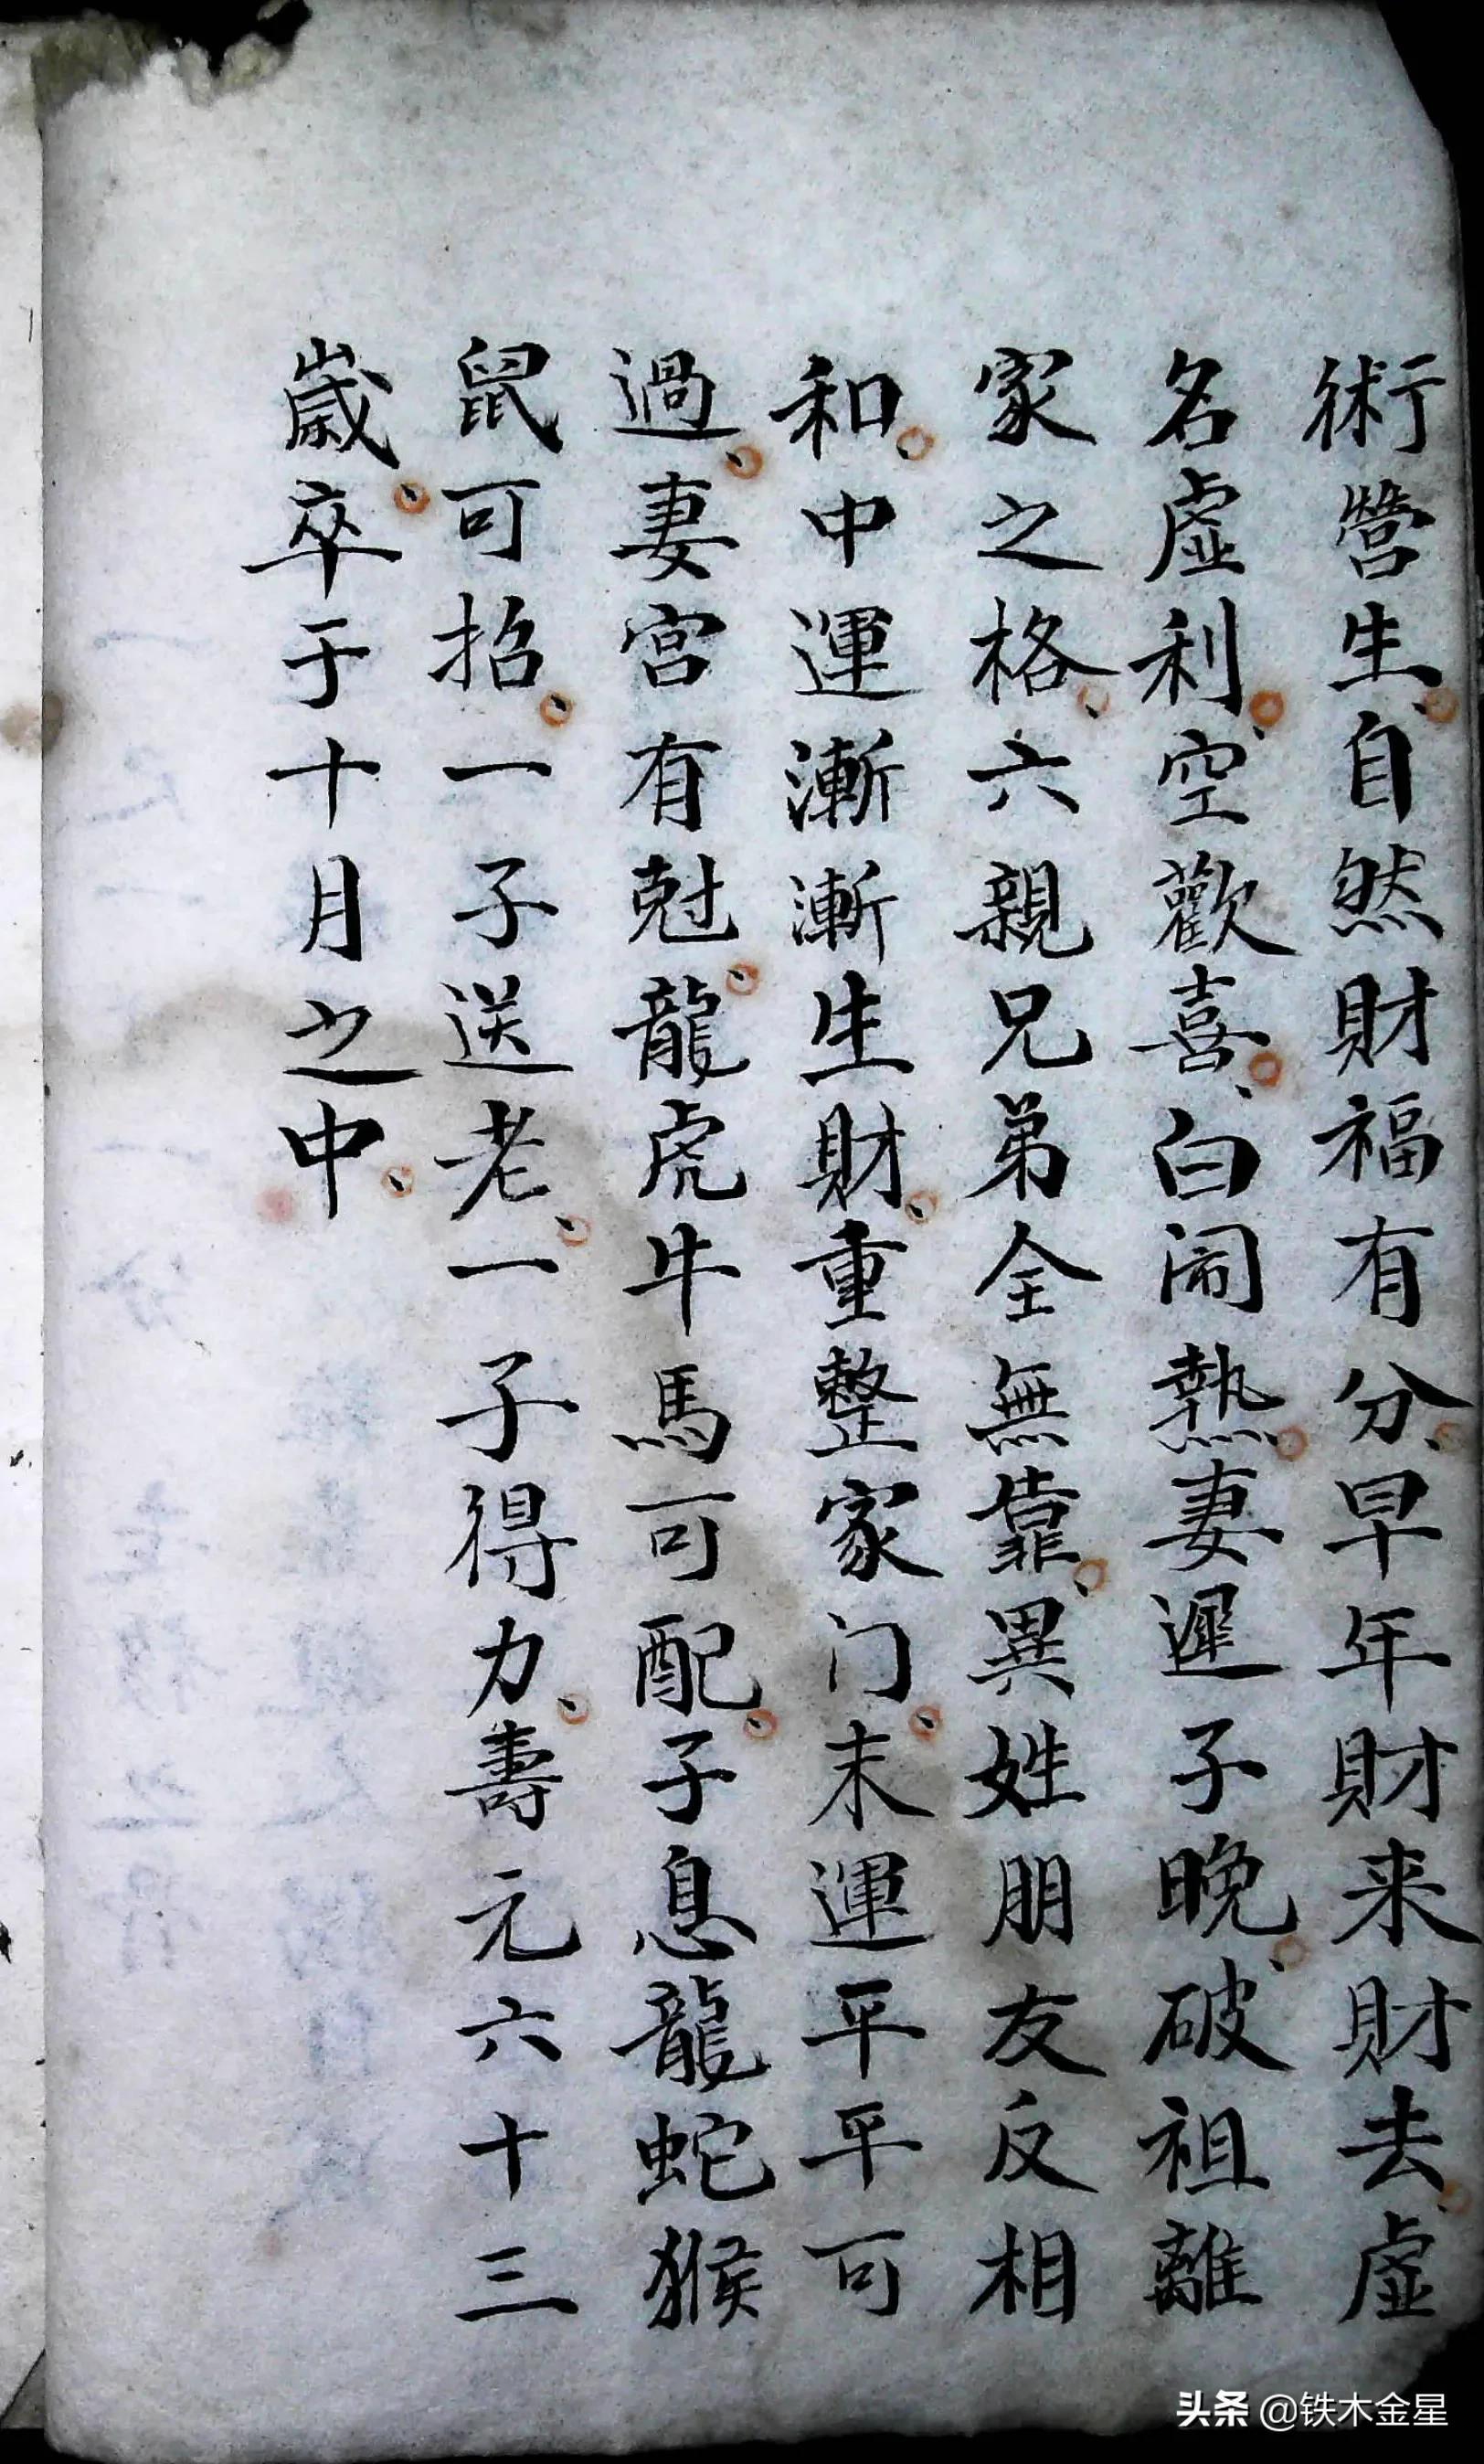 術營生、自然財福有分、早年財来財去、虛
名虛利、空歡喜、白闹熱、妻遲子晚、破祖離
家之格、六親兄弟全無靠、異姓朋友反相
和、中運漸漸生財、重整家门、末運平平可
過、妻宮有尅、龍虎牛馬可配、子息龍蛇猴
鼠可招、一子送老、一子得力、壽元六十三
歲、卒于十月之中、
头条 @铁木金星